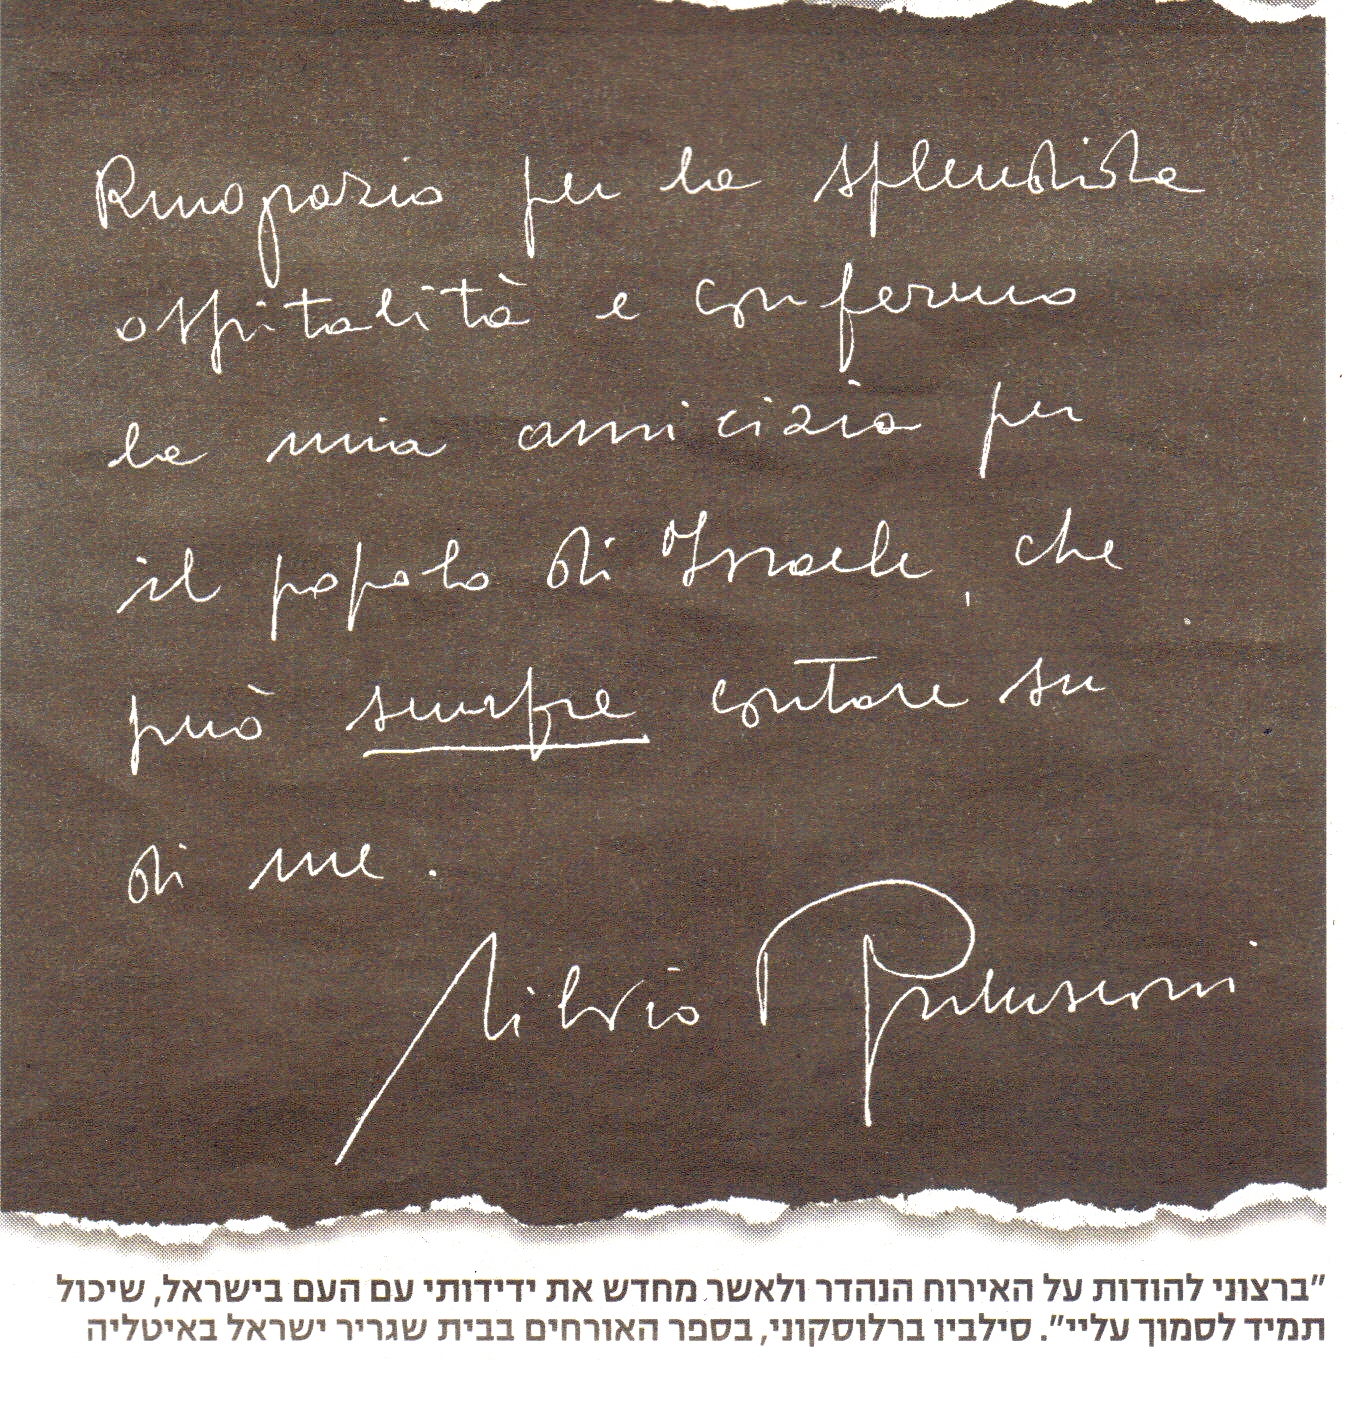 Ringrazio per la splendida
ospitalità e confermo
la mia amicizia per
il popolo di Israele, che
può sempre contare su
di me.
Silvio Berlusconi
"ברצוני להודות על האירוח הנהדר ולאשר מחדש את ידידותי עם העם בישראל, שיכול
תמיד לסמוך עליי". סילביו ברלוסקוני, בספר האורחים בבית שגריר ישראל באיטליה